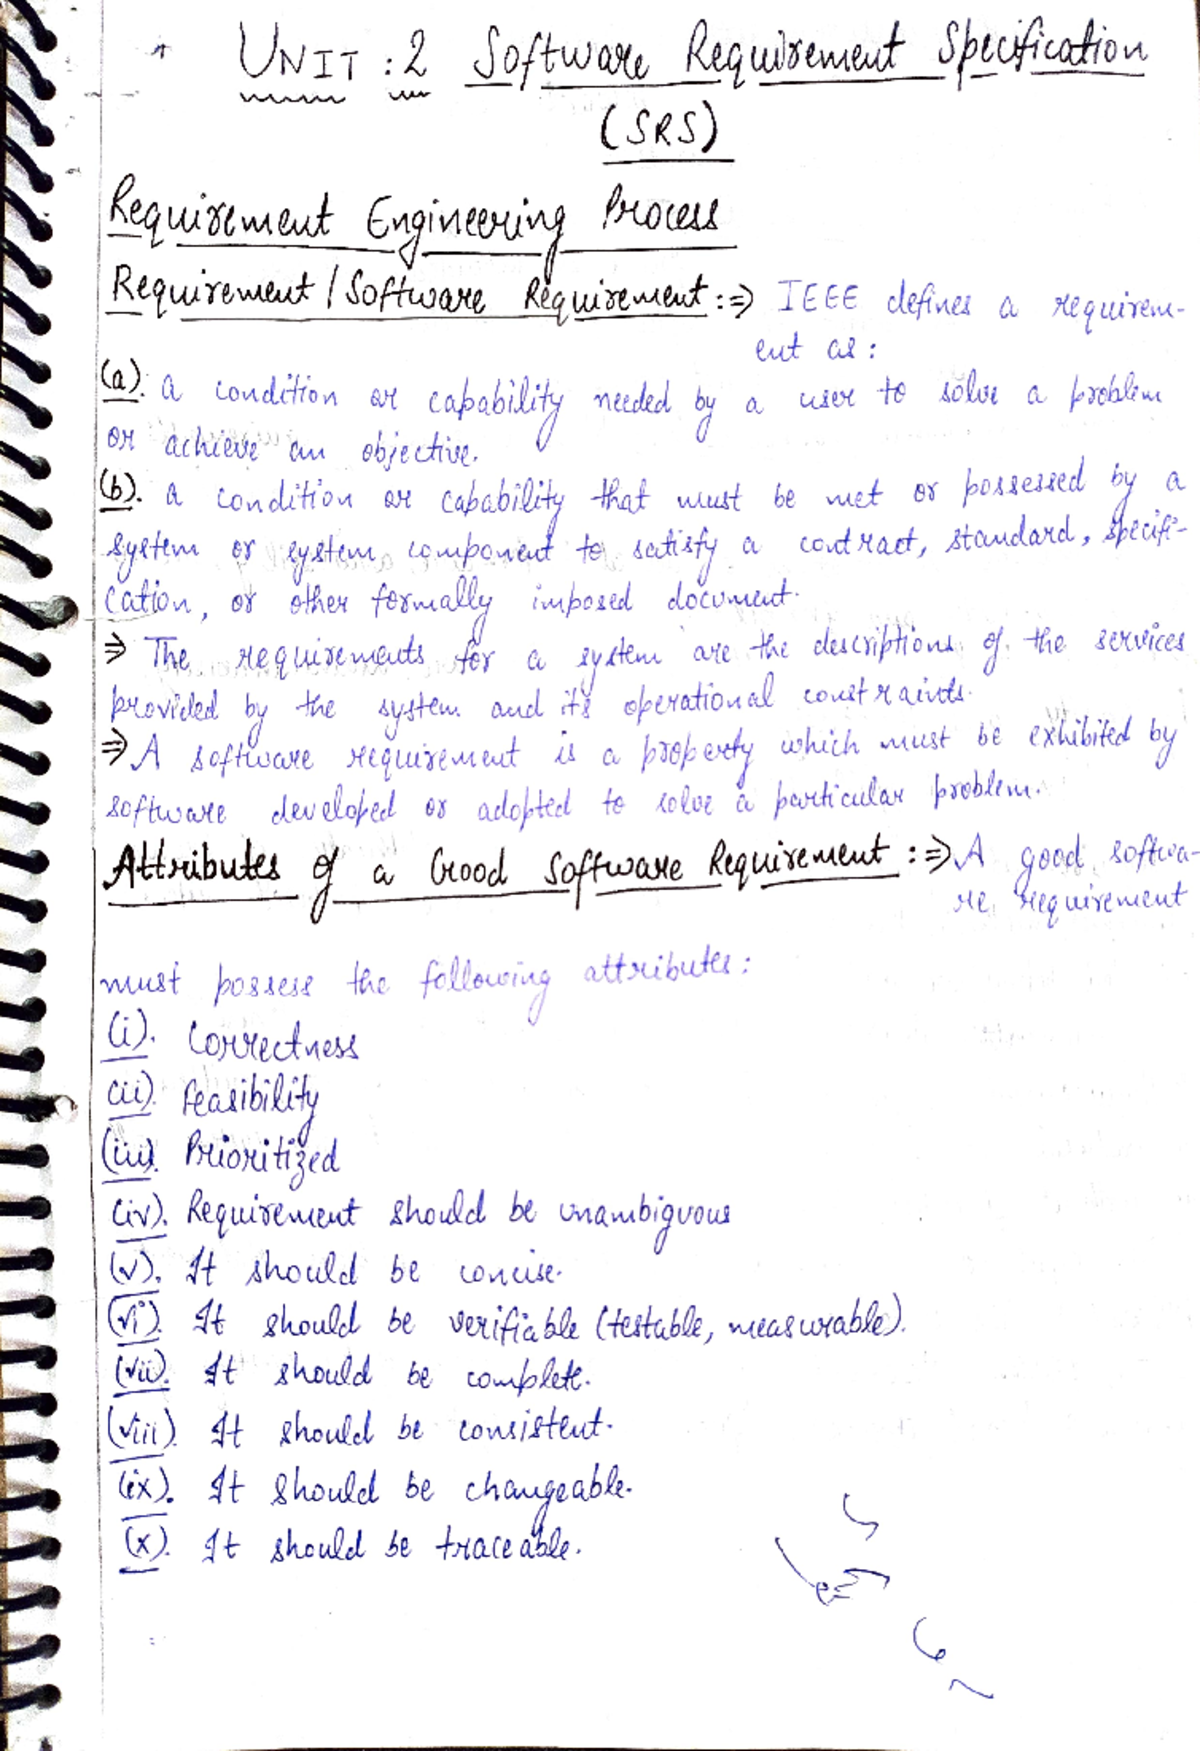 UNIT : 2 Software Requirement Specification
(SRS)
Requirement Engineering Process
Requirement / Software Requirement :⇒ IEEE defines a requirem-
ent as :
(a). a condition or capability needed by a user to solve a problem
or achieve an objective.
(b). a condition or capability that must be met or possessed by a
system or system component to satisfy a contract, standard, specifi-
cation, or other formally imposed document.
⇒ The requirements for a system are the descriptions of the services
provided by the system and its operational constraints.
⇒ A software requirement is a property which must be exhibited by
software developed or adopted to solve a particular problem.
Attributes of a Good Software Requirement :⇒ A good softwa-
re requirement
must possess the following attributes :
(i). Correctness
(ii). Feasibility
(iii). Prioritized
(iv). Requirement should be unambiguous
(v). It should be concise.
(vi). It should be verifiable (testable, measurable).
(vii). It should be complete.
(viii). It should be consistent.
(ix). It should be changeable.
(x). It should be traceable.